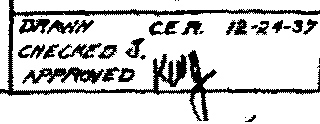 DRAWN C.E.R. 12-24-37
CHECKED J.
APPROVED